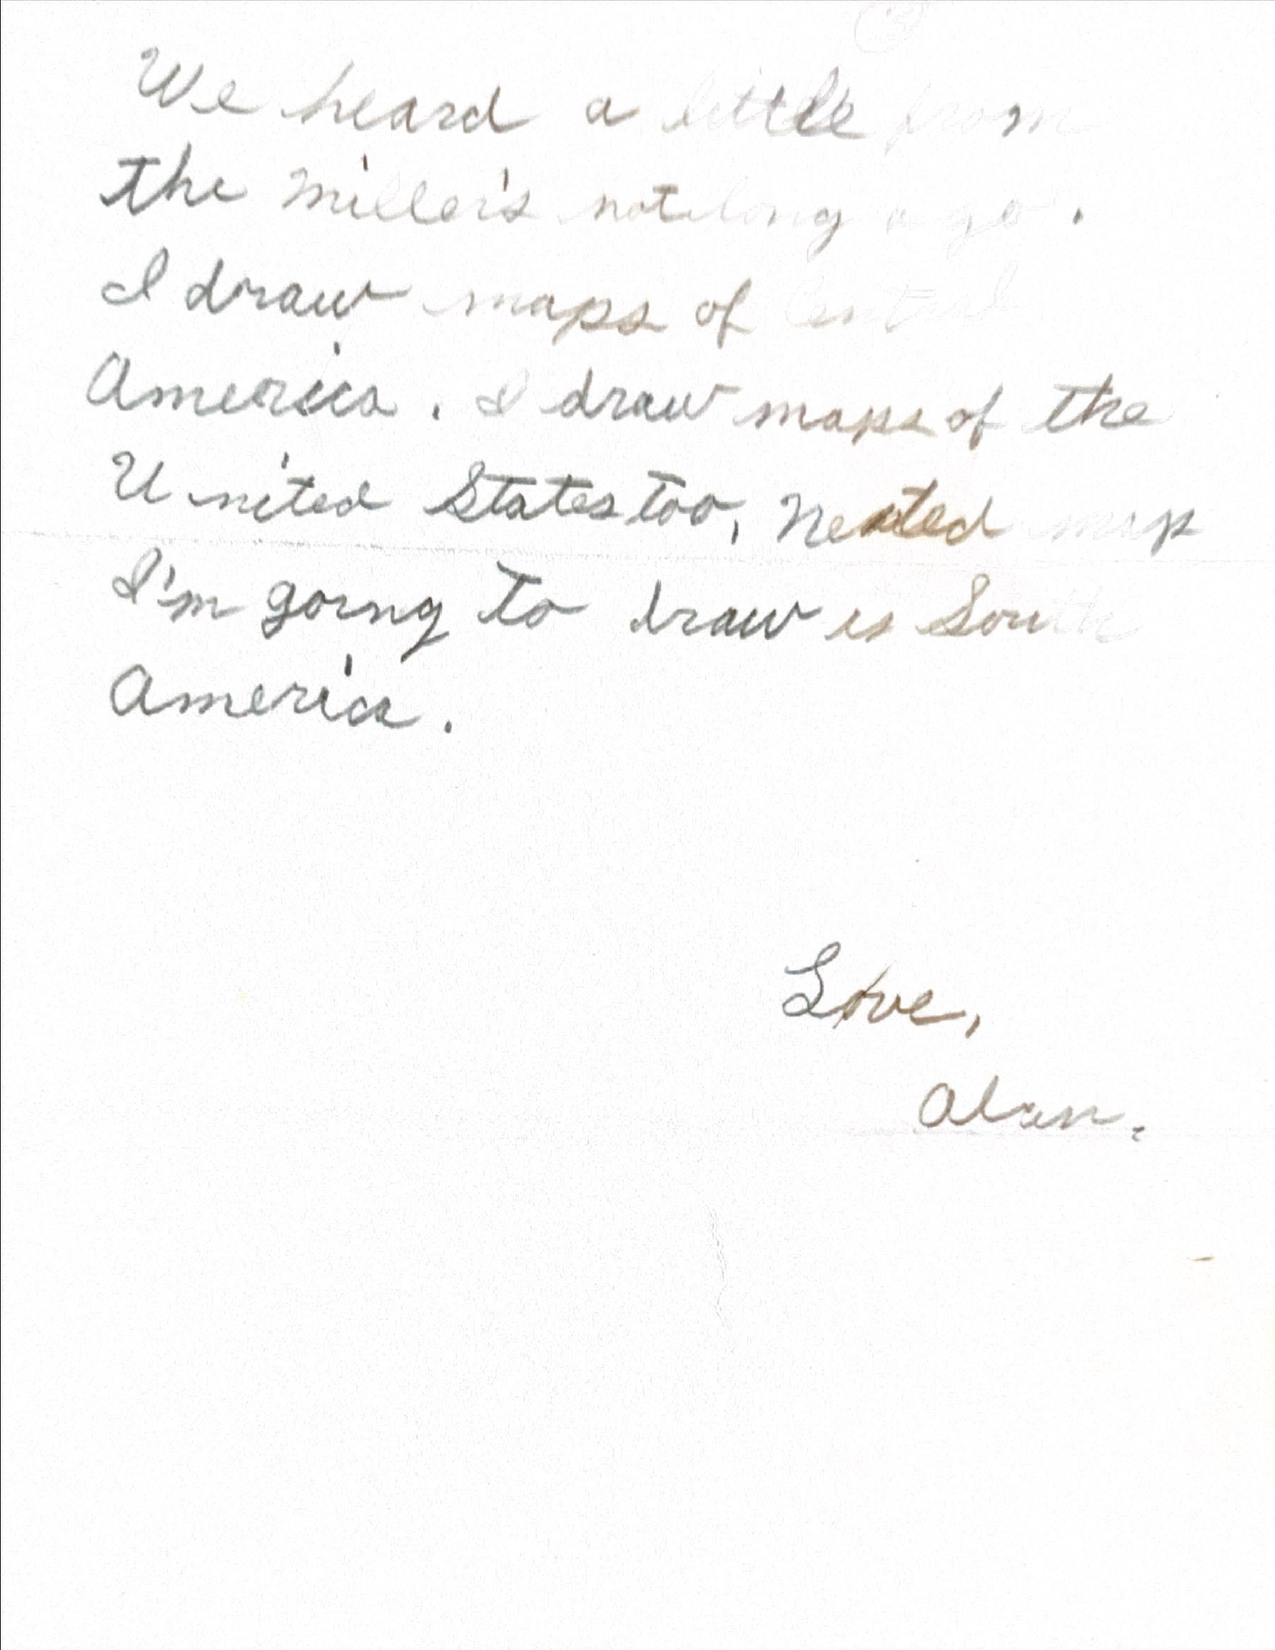 We heard a little from
the Miller's not long ago.
I draw maps of Central
America. I draw maps of the
United States too, Nexted map
I'm going to draw is South
America.
Love,
Alan.